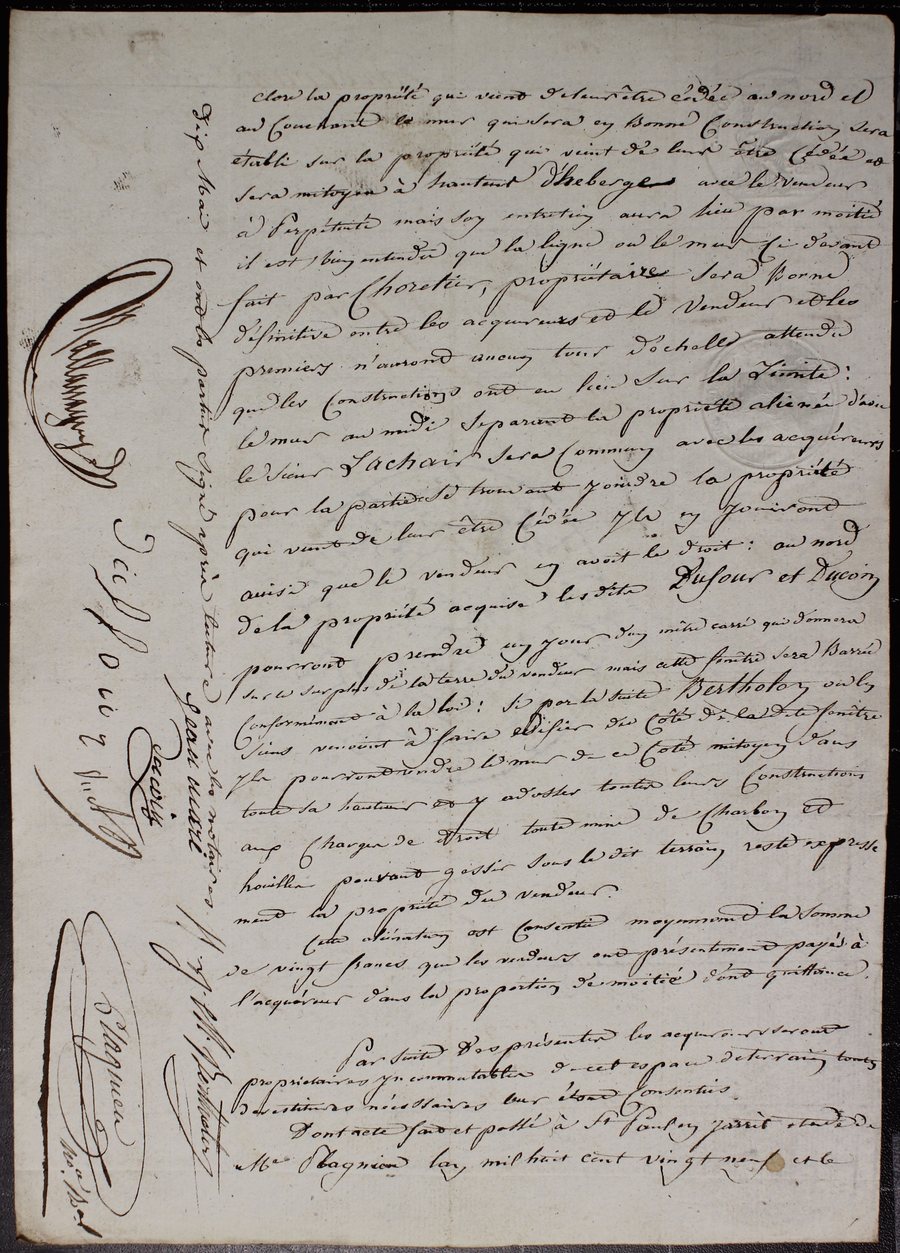 clore la propriété qui vient de leur être cédée au nord et
au Couchant le mur qui sera en Bonne Construction sera
établi sur la propriété qui vient de leur être Cédée et
sera mitoyen à hauteur d'héberge avec le vendeur
à Perpétuité mais son entretien aura lieu par moitié
il est bien entendu que la ligne ou le mur ci devant
fait par Choretier, propriétaire sera Borne
définitive entre les acquereurs et le Vendeur et les
premiers n'auront aucun tour d'échelle attendu
que les Constructions ont eu lieu sur la Limite:
le mur au midi separant la propriété alienée d'avec
le sieur Lachair sera Commun avec les acquéreurs
pour la partie Se trouvant joindre la propriété
qui vient de leur être Cédée yls en jouiront
ainsi que le vendeur en avoit le droit: au nord
de la propriété acquise lesdits Dufour et Ducoin
pourront prendre un jour d'un mêtre carré qui donnera
sur ce surplus de la terre du vendeur mais cette fenêtre sera Barrée
Conformément à la loi: Si par la suite Bertholon ou les
Siens venoient à faire édifier du Côté de la dite fenêtre
yls pourront rendre le mur de ce Coté mitoyen dans
toute sa hauteur et y adosser toutes leurs Constructions
aux Charges de droit toute mine de Charbon et
houilles pouvant gessir sous le dit terrain reste expresse
ment la propriété du vendeur.
Cette aliénation est Consentie moyennant la Somme
de vingt francs que les vendeurs ont présentement payés à
l'acquéreur dans la proportion de moitié dont quittance.
Par suite Des présentes les acquereurs seront
propriétaires yncommutables de cet espace de terrain toutes
devestitures nécessaires leur étant Consenties
Dont acte fait et passé à St Paul en Jarrêt etude de
Me Plagnieu l'an mil huit cent vingt neuf et le
dix Mai et ont les parties signé après lecture avec les notaires
Dufour
Ducoin
Plagnieu